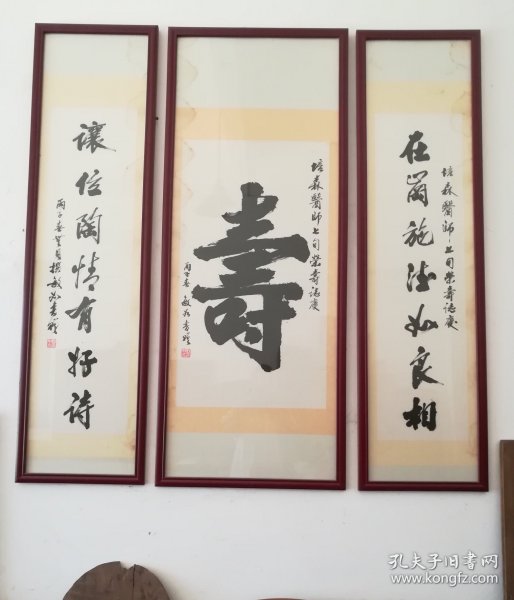 在崗施德如良相
培森醫師七旬榮壽誌慶
培森醫師七旬榮壽誌慶
壽
丙子春
讓位陶情有好詩
丙子春
孔夫子旧书网
www.kongfz.com